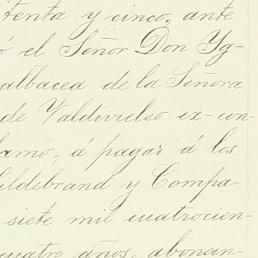 tenta y cinco, ante
ó el Señor Don Yg-
albacea de la Señora
de Valdivielso ex-con-
lamo, á pagar á los
ildebrand y Compa-
siete mil cuatrocien-
cuatro años, abonan-